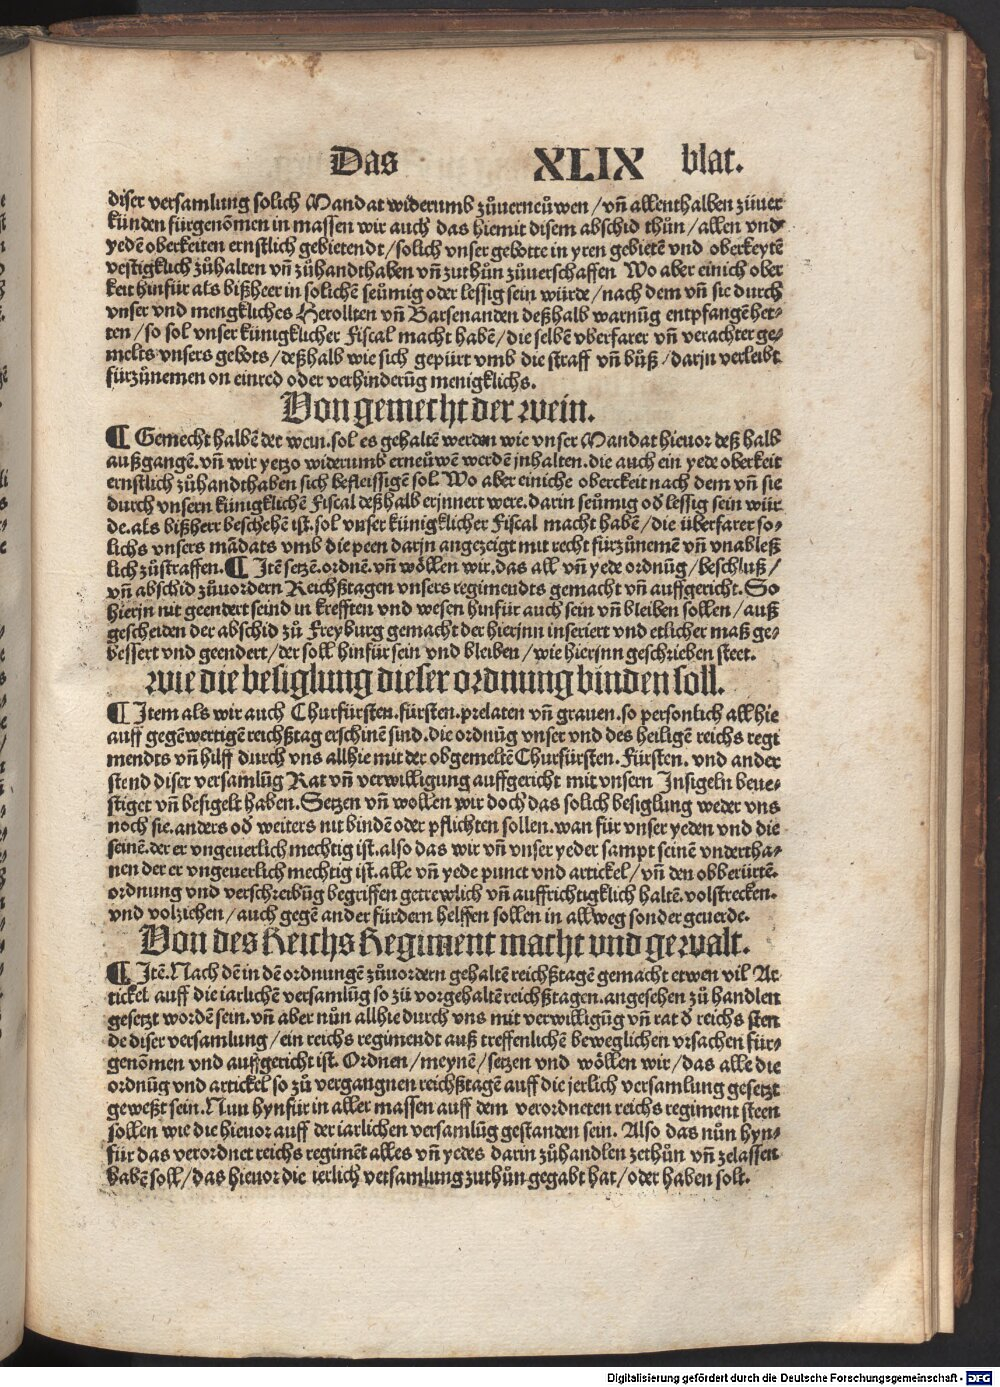 Das XLIX blat.
diser versamlung solich Mandat widerumb zůuerneüwen / vñ allenthalben züuer
künden fürgenõmen in massen wir auch das hiemit disem abschid thůn / allen vnd
yedẽ oberkeiten ernstlich gebietendt / solich vnser gebotte in yren gebietẽ vnd oberkeytẽ
vestigklich zůhalten vñ zůhandthaben vñ zuthůn zůuerschaffen Wo aber einich ober
keit hinfür als bißheer in solichẽ seümig oder lessig sein würde / nach dem vñ sie durch
vnser vnd mengkliches Herollten vñ Barsenanden deßhalb warnũg entpfangẽ het⸗
ten / so sol vnser künigklicher Fiscal macht habẽ / die selbẽ vberfarer vñ verachter ge⸗
melts vnsers gebots / deßhalb wie sich gepürt vmb die straff vñ bůß / darjn verleibt
fürzůnemen on einred oder verhinderũg menigklichs.
Von gemecht der wein.
¶ Gemecht halbẽ der wein. sol es gehaltẽ werden wie vnser Mandat hieuor deß halb
außgangẽ. vñ wir yetzo widerumb erneüwẽ werdẽ jnhalten. die auch ein yede oberkeit
ernstlich zůhandthaben sich befleissigẽ sol. Wo aber einiche oberckeit nach dem vñ sie
durch vnsern künigklichẽ Fiscal deßhalb erjnnert were. darin seümig od lessig sein wür
de. als bißherr beschehẽ ist. sol vnser künigklicher Fiscal macht habẽ / die überfarer so⸗
lichs vnsers mãdats vmb die peen darjn angezeigt mit recht fürzůnemẽ vñ vnableß
lich zůstraffen. ¶ Itẽ setzẽ. ordnẽ. vñ wöllen wir. das all vñ yede ordnũg / beschluß /
vñ abschid zůuordern Reichßtagen vnsers regimendts gemacht vñ auffgericht. So
hierjn nit geendert seind in krefften vnd wesen hinfür auch sein vñ bleiben sollen / auß
gescheiden der abschid zů Freyburg gemacht der hierjnn inseriert vnd etlicher maß ge⸗
bessert vnd geendert / der soll hinfür sein vnd bleiben / wie hierjnn geschrieben steet.
wie die besiglung dieser ordnung binden soll.
¶ Item als wir auch Churfürsten. fürsten. prelaten vñ grauen. so personlich all hie
auff gegẽwertigẽ reichßtag erschinẽ sind. die ordnũg vnser vnd des heiligẽ reichs regi
mendts vñ hilff durch vns allhie mit der obgemeltẽ Churfürsten. Fürsten. vnd ander
stend diser versamlũg Rat vñ verwilligung auffgericht mit vnsern Insigeln beue⸗
stiget vñ besigelt haben. Setzen vñ wollen wir doch das solich besiglung weder vns
noch sie. anders od weiters nit bindẽ oder pflichten sollen. wan für vnser yeden vnd die
seinẽ. der er vngeuerlich mechtig ist. also das wir vñ vnser yeder sampt seinẽ vndertha⸗
nen der er vngeuerlich mechtig ist. alle vñ yede punct vnd artickel / vñ den obberürtẽ.
ordnung vnd verschreibũg begriffen getrewlich vñ auffrichtigklich haltẽ. volstrecken.
vnd volziehen / auch gegẽ ander fürdern helffen sollen in allweg sonder geuerde.
Von des Reichs Regiment macht vnd gewalt.
¶ Itẽ. Nach dẽ in dẽ ordnungẽ zůuordern gehaltẽ reichßtagẽ gemacht etwen vil Ar
tickel auff die iarlichẽ versamlũg so zů vorgehaltẽ reichßtagen. angesehen zů handlen
gesetzt wordẽ sein. vñ aber nůn allhie durch vns mit verwilligũg vñ rat d reichs sten
de diser versamlung / ein reichs regimendt auß treffenlichẽ beweglichen vrsachen für⸗
genõmen vnd auffgericht ist. Ordnen / meynẽ / setzen vnd wöllen wir / das alle die
ordnũg vnd artickel so zů vergangnen reichßtagẽ auff die jerlich versamlung gesetzt
geweßt sein. Nun hynfür in aller massen auff dem verordneten reichs regiment steen
sollen wie die hieuor auff der iarlichen versamlũg gestanden sein. Also das nůn hyn⸗
für das verordnet reichs regimẽt alles vñ yedes darin zůhandlen zethůn vñ zelassen
habẽ soll / das hieuor die ierlich versamlung zuthůn gegabt hat / oder haben solt.
Digitalisierung gefördert durch die Deutsche Forschungsgemeinschaft - DFG